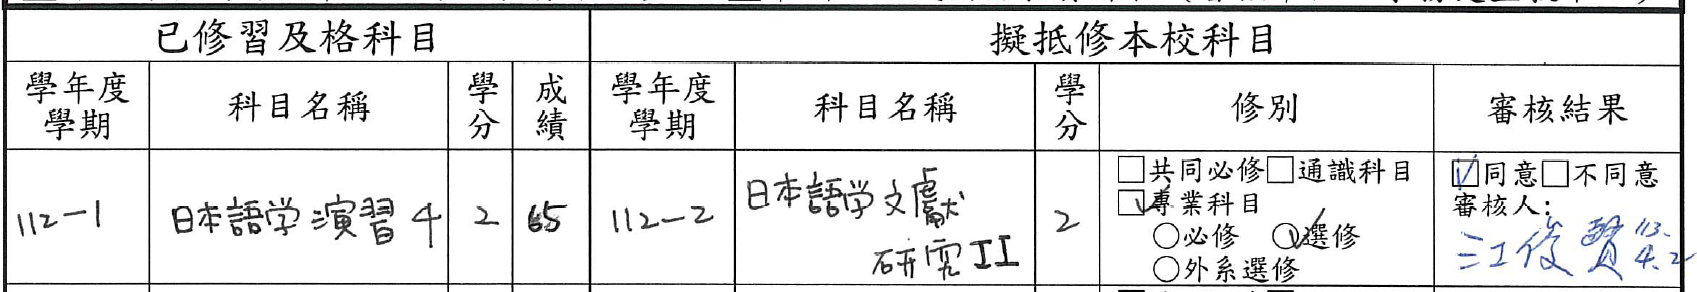 已修習及格科目 擬抵修本校科目
學年度學期 科目名稱 學分 成績 學年度學期 科目名稱 學分 修別 審核結果
112-1 日本語学演習4 2 65 112-2 日本語学文獻研究II 2
□共同必修□通識科目
☑專業科目
○必修 ✓選修
○外系選修
☑同意□不同意
審核人:
江俊賢 113.4.2